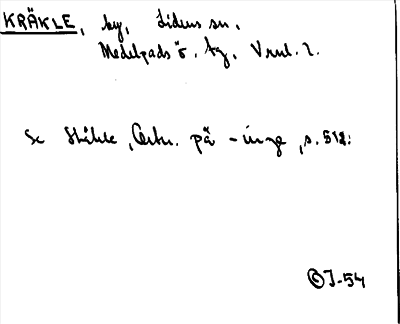 KRÄKLE, by, Lidens sn,
Medelpads ö. tg, Vrnl. l.
Se Ståhle, Ortn. på -inge, s. 512.
J-54